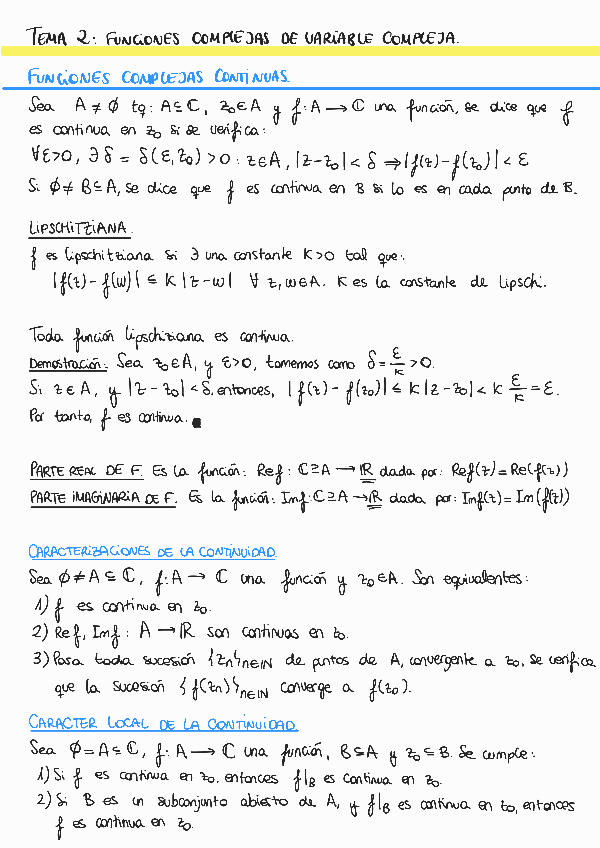 TEMA 2: FUNCIONES COMPLEJAS DE VARIABLE COMPLEJA.
FUNCIONES COMPLEJAS CONTINUAS.
Sea A ≠ ∅ tq: A ⊆ ℂ, z₀ ∈ A y f: A → ℂ una función, se dice que f
es continua en z₀ si se verifica:
∀ε>0, ∃ δ = δ(ε, z₀) > 0 : z ∈ A, |z - z₀| < δ ⇒ |f(z) - f(z₀)| < ε
Si ∅ ≠ B ⊆ A, se dice que f es continua en B si lo es en cada punto de B.
LIPSCHITZIANA.
f es lipschitziana si ∃ una constante K>0 tal que:
|f(z) - f(w)| ≤ K |z - w| ∀ z, w ∈ A. K es la constante de Lipschi.
Toda función lipschiziana es continua.
Demostración: Sea z₀ ∈ A, y ε>0, tomemos como δ = ε/K > 0.
Si z ∈ A, y |z - z₀| < δ, entonces, |f(z) - f(z₀)| ≤ K |z - z₀| < K ε/K = ε.
Por tanto, f es continua. ■
PARTE REAL DE F. Es la función: Re f : ℂ ⊇ A → ℝ dada por: Re f(z) = Re(f(z))
PARTE IMAGINARIA DE F. Es la función: Im f: ℂ ⊇ A → ℝ dada por: Im f(z) = Im(f(z))
CARACTERIZACIONES DE LA CONTINUIDAD.
Sea ∅ ≠ A ⊆ ℂ, f: A → ℂ una función y z₀ ∈ A. Son equivalentes:
1) f es continua en z₀.
2) Re f, Im f : A → ℝ son continuas en z₀.
3) Para toda sucesión {zn}n∈ℕ de puntos de A, convergente a z₀, se verifica
que la sucesión {f(zn)}n∈ℕ converge a f(z₀).
CARACTER LOCAL DE LA CONTINUIDAD.
Sea ∅ = A ⊆ ℂ, f: A → ℂ una función, B ⊆ A y z₀ ⊆ B. Se cumple:
1) Si f es continua en z₀, entonces f|B es continua en z₀.
2) Si B es un subconjunto abierto de A, y f|B es continua en z₀, entonces
f es continua en z₀.